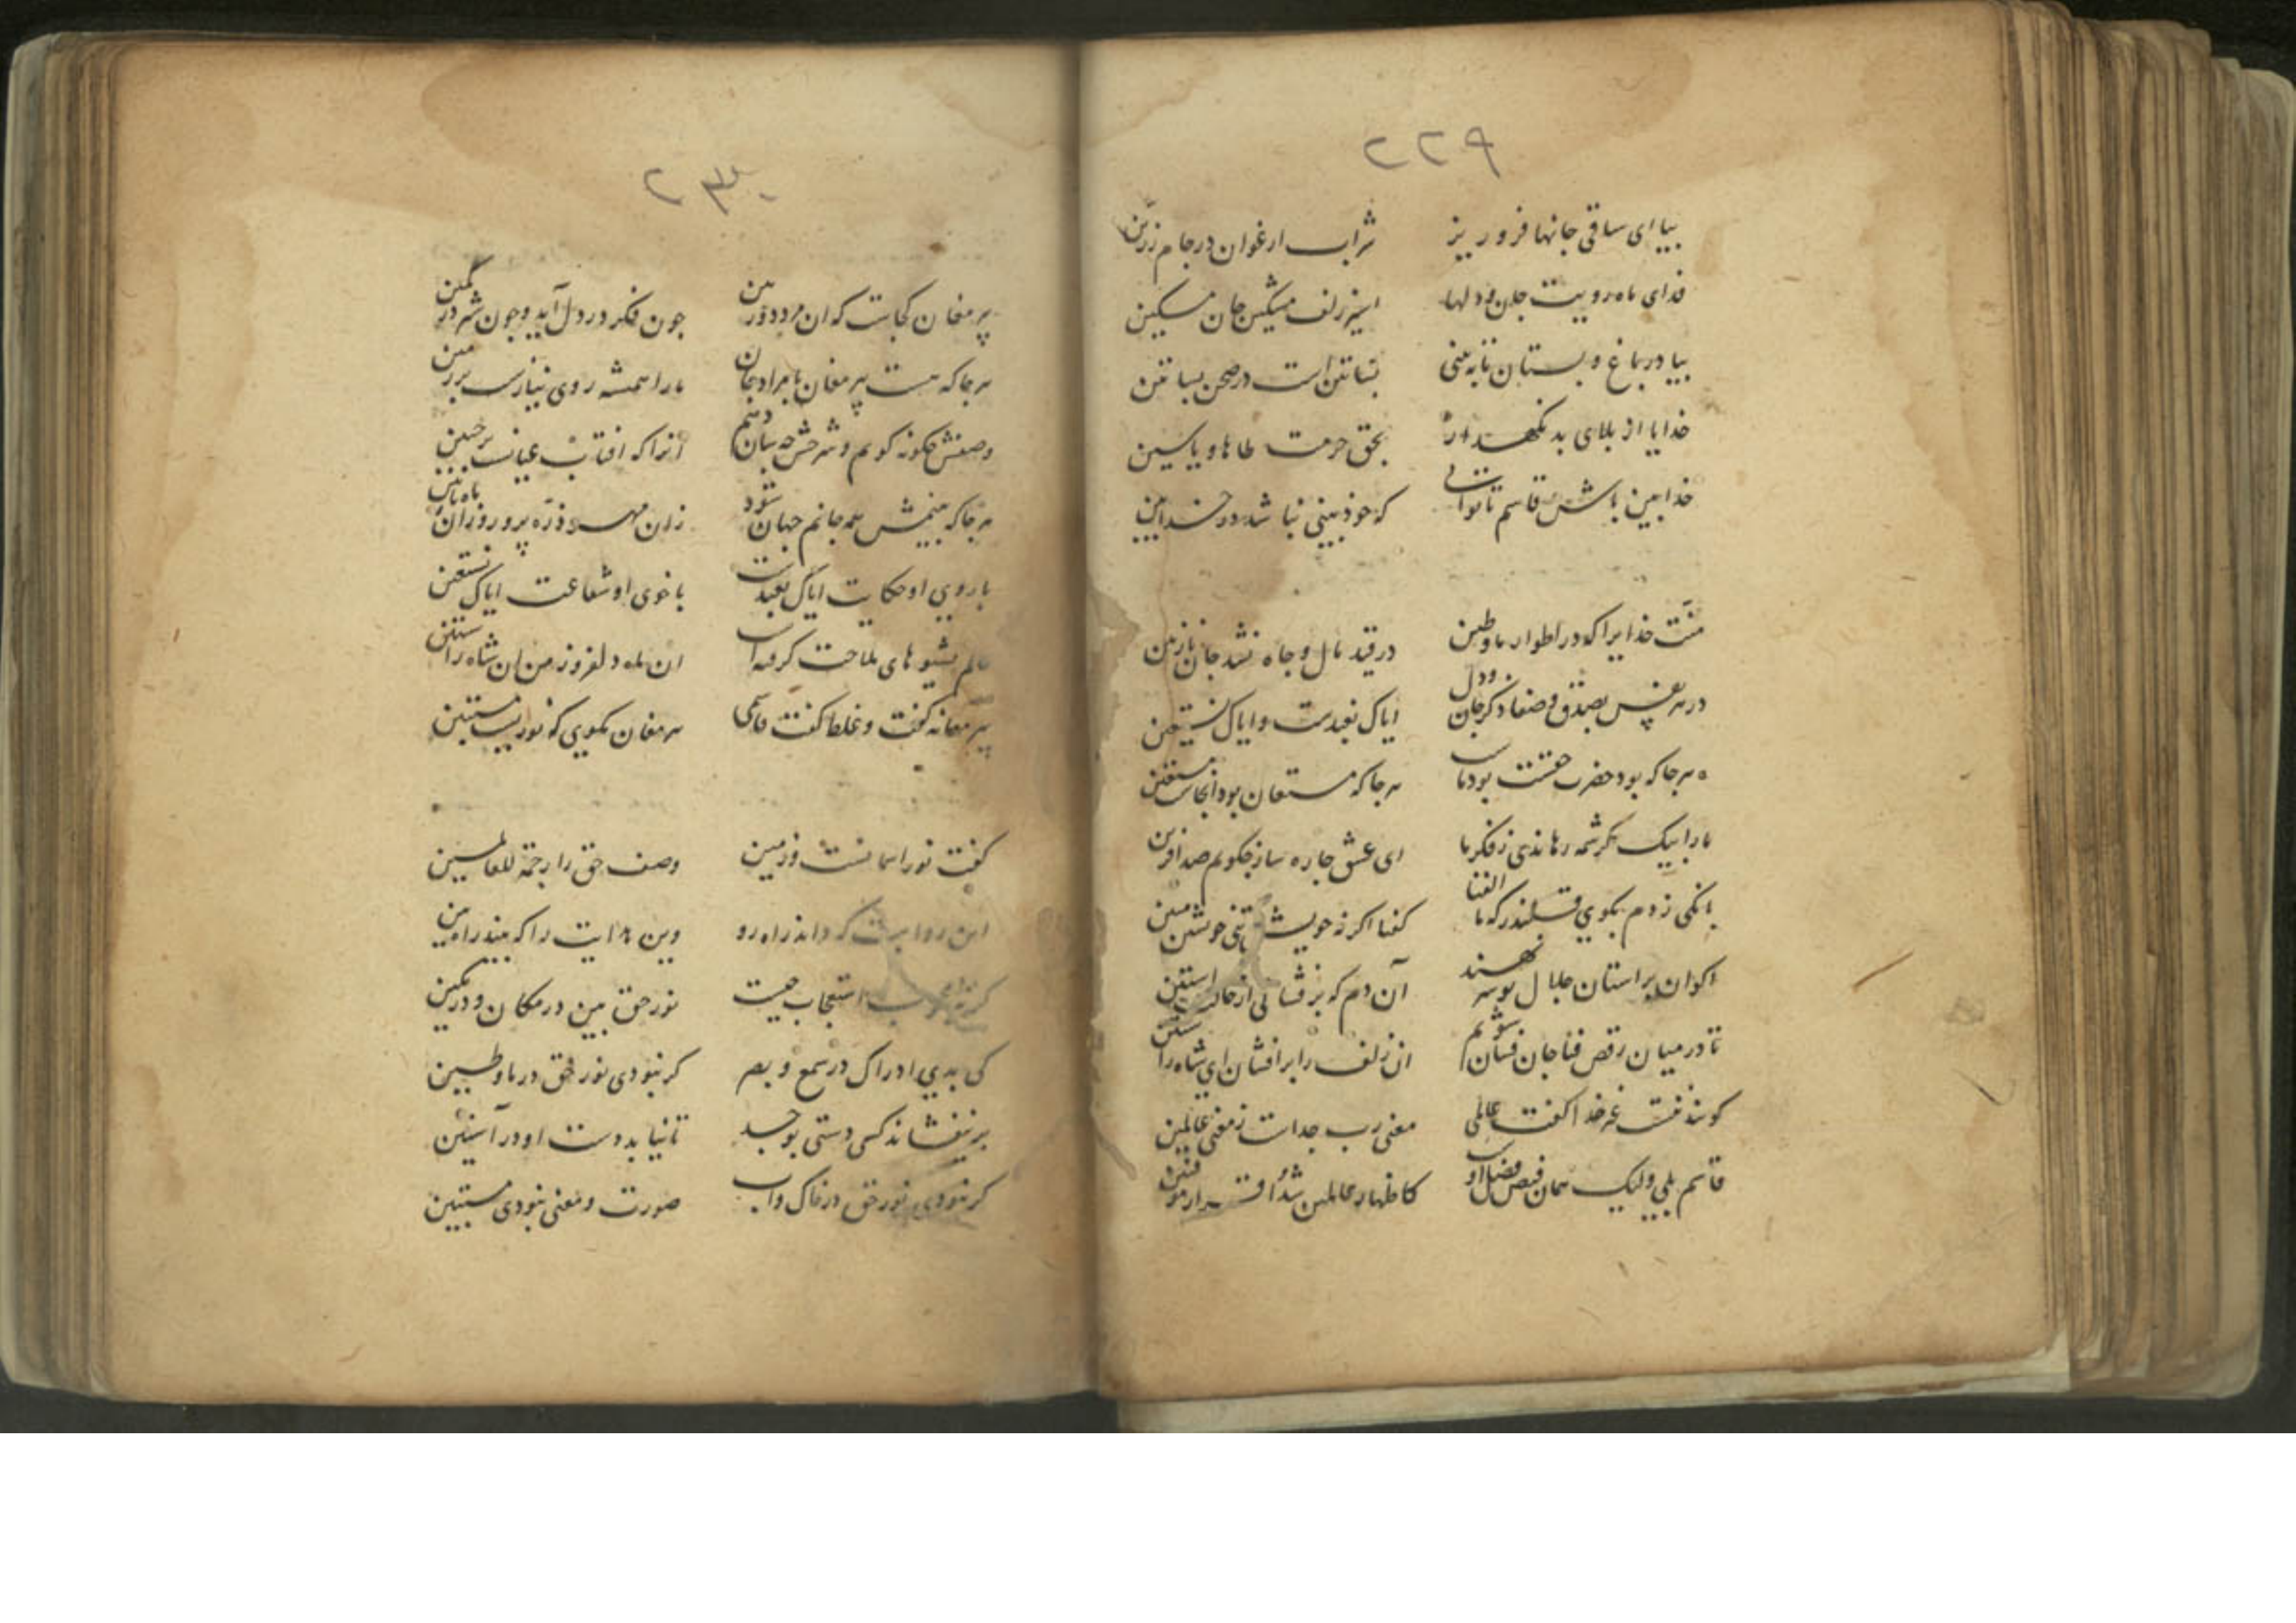 ۲۲۹
بیا ای ساقی جانها فرو ریز شراب ارغوان در جام زرین
فدای ماه رویت جان و دلها اسیر زلف مشکین جان مسکین
بیا در باغ و بستان تا به بینی بساتین است در صحن بساتین
خدایا از بلای بد نکهدار بحق حرمت طاها و یاسین
خدابین باش قاسم تا توانی که خودبینی نباشد در خدابین
منت خدایرا که در اطوار ما و طین در قید مال و جاه نشد جان نازنین
در هر نفس بصدق و صفا ذکر جان و دل ایاک نعبدست و ایاک نستعین
هرجا که بود حضرت حقست بود ماست هرجا که مستعان بود آنجاست مستعین
ما را بیک کرشمه رهاندی ز فکر ما ای عشق جاره ساز جکویم صد آفرین
بانکی زدم بکوی قلندر که ما الفنا کفتا اکر نه خویش تنی خویشتن مبین
اکوان بر استان جلال تو سر نهند آن دم که بر فشانی از حالت استین
تا در میان رقص فنا جان فشان شویم ان زلف را برافشان ای شاه راستین
کویند نیست غیر خدا کفت عالمی معنی رب جداست ز معنی عالمین
قاسم بلی ولیک همان فیض فضل اوست کاظهار عالمین شد
۲۳۰
پیر مغان کجاست که ان مرد دوربین جون فکر در دل آید و جون شیر در کمین
هرجا که هست پیر مغان با مراد جان ما را همیشه روی نیازست بر زمین
وصفش جکونه کویم و شرحش جه سان دهم آنرا که افتاب عیانست بر جبین
هرجا که بینمش همه جانم جهان شود زان مهر ذره پرور و زان ماه نازنین
با روی او حکایت ایاک نعبدست با خوی او شفاعت ایاک نستعین
عالم بشیوهای ملاحت کرفته است ان ماه دلفروز من ان شاه راستین
پیر مغانه کفت و غلط کفت قاسمی پیر مغان مکوی که نوریست مستبین
کفت نور اسمانست و زمین وصف حق را رحمة للعالمین
این روایت که داند راه رو وین هدایت را که بیند راه بین
استعجاب جیست نور حق بین در مکان و در مکین
کی بدی ادراک در سمع و بصر کر نبودی نور حق در ما و طین
بر نیفشاند کسی دستی بوجد تا نیابد دست او در آستین
کر نبودی نور حق در خاک و آب صورت و معنی نبودی مستبین